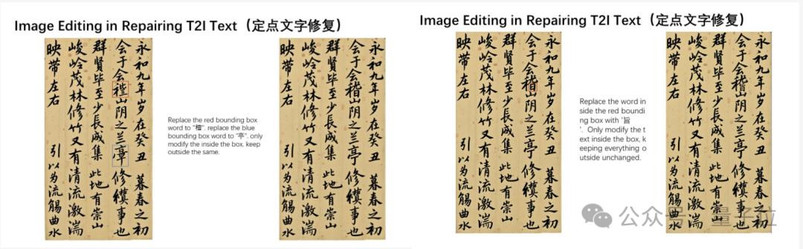 Image Editing in Repairing T2I Text（定点文字修复）
永和九年岁在癸丑 暮春之初
会于会山阴之兰 修禊事也
群贤毕至少长咸集 此地有崇山
峻岭茂林修竹又有清流激湍
映带左右 引以为流觞曲水
Replace the red bounding box
word to "稽". replace the blue
bounding box word to "亭". only
modify the inside the box. keep
outside the same.
永和九年岁在癸丑 暮春之初
会于会稽山阴之兰亭 修禊事也
群贤毕至少长咸集 此地有崇山
峻岭茂林修竹又有清流激湍
映带左右 引以为流觞曲水
Image Editing in Repairing T2I Text（定点文字修复）
永和九年岁在癸丑 暮春之初
会于会山阴之兰亭 修禊事也
群贤毕至少长咸集 此地有崇山
峻岭茂林修竹又有清流激湍
映带左右 引以为流觞曲水
Replace the word in
side the red boundi
ng box with "旨
". Only modify the t
ext inside the box, k
eeping everything o
utside unchanged.
永和九年岁在癸丑 暮春之初
会于会稽山阴之兰亭 修禊事也
群贤毕至少长咸集 此地有崇山
峻岭茂林修竹又有清流激湍
映带左右 引以为流觞曲水
公众号 · 量子位